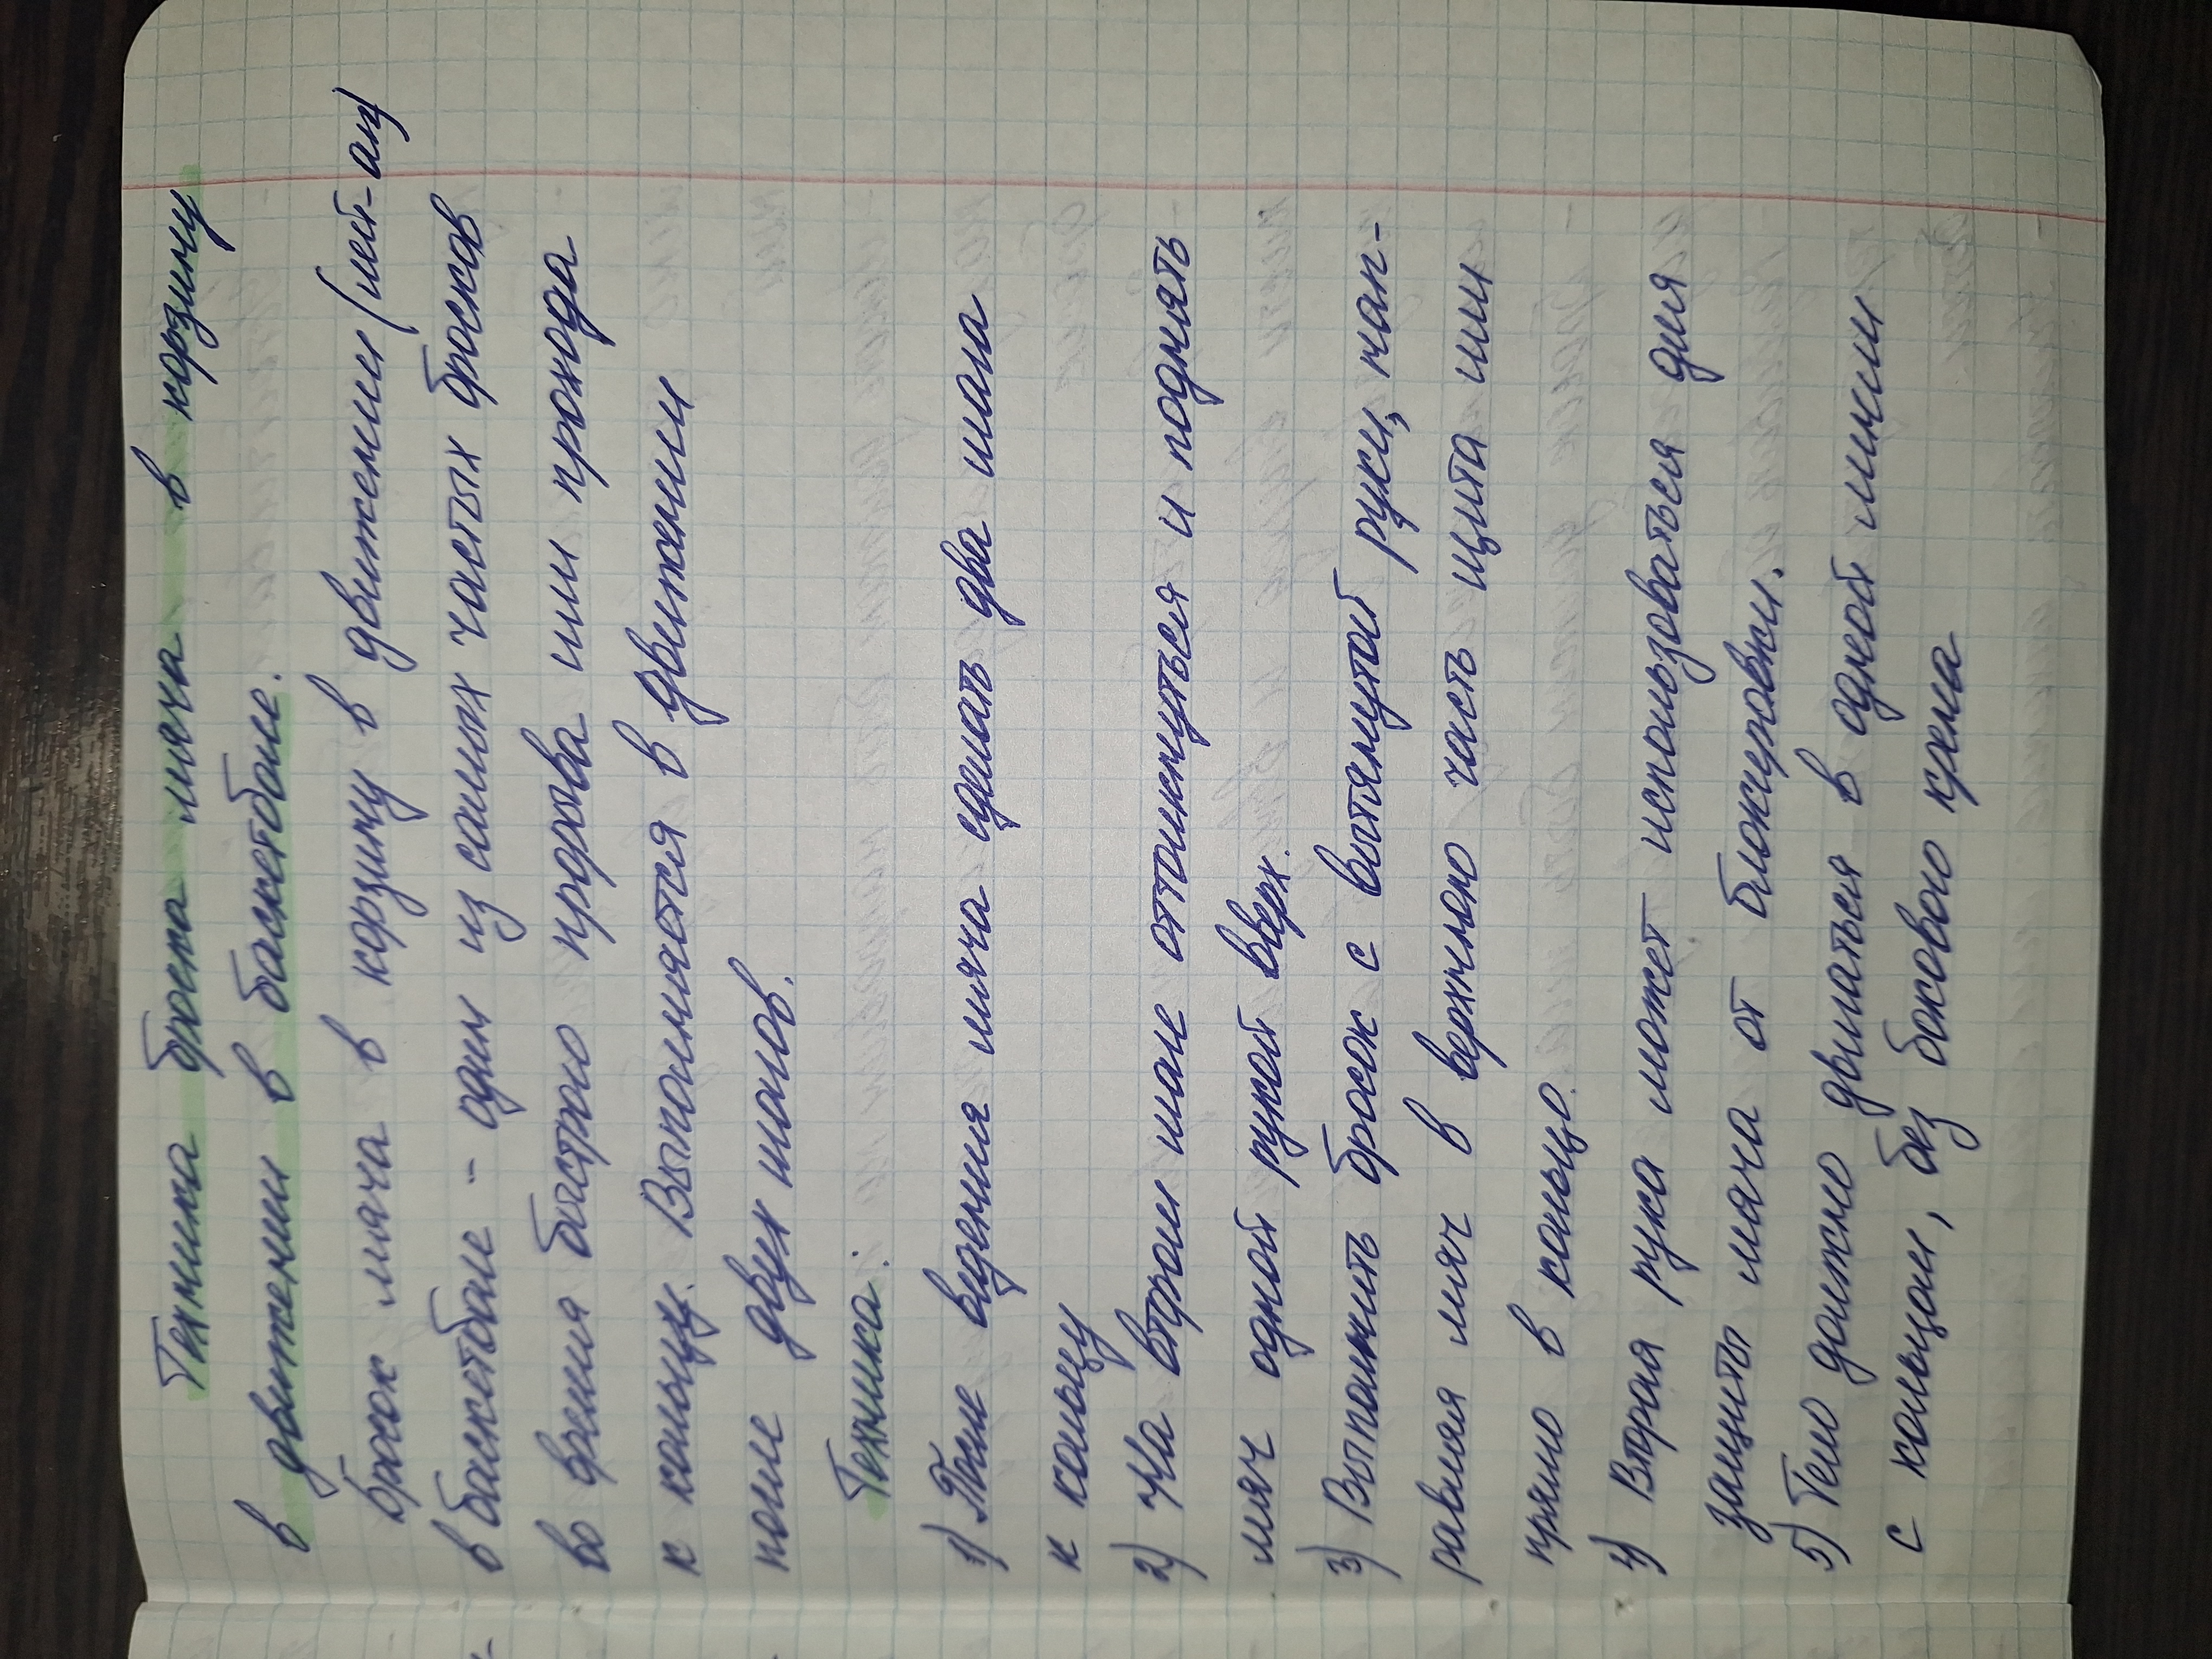 Техника броска мяча в корзину
в движении в баскетболе.
Бросок мяча в корзину в движении (лей-ап)
в баскетболе - один из самых частых бросков
во время быстрого прорыва или прохода
к кольцу. Выполняется в движении
после двух шагов.
Техника:
1) После ведения мяча сделать два шага
к кольцу
2) На втором шаге оттолкнуться и поднять
мяч одной рукой вверх.
3) Выполнить бросок с вытянутой руки, нап-
равляя мяч в верхнюю часть щита или
прямо в кольцо.
4) Вторая рука может использоваться для
защиты мяча от блокировки.
5) Тело должно двигаться в одной линии
с кольцом, без бокового крена